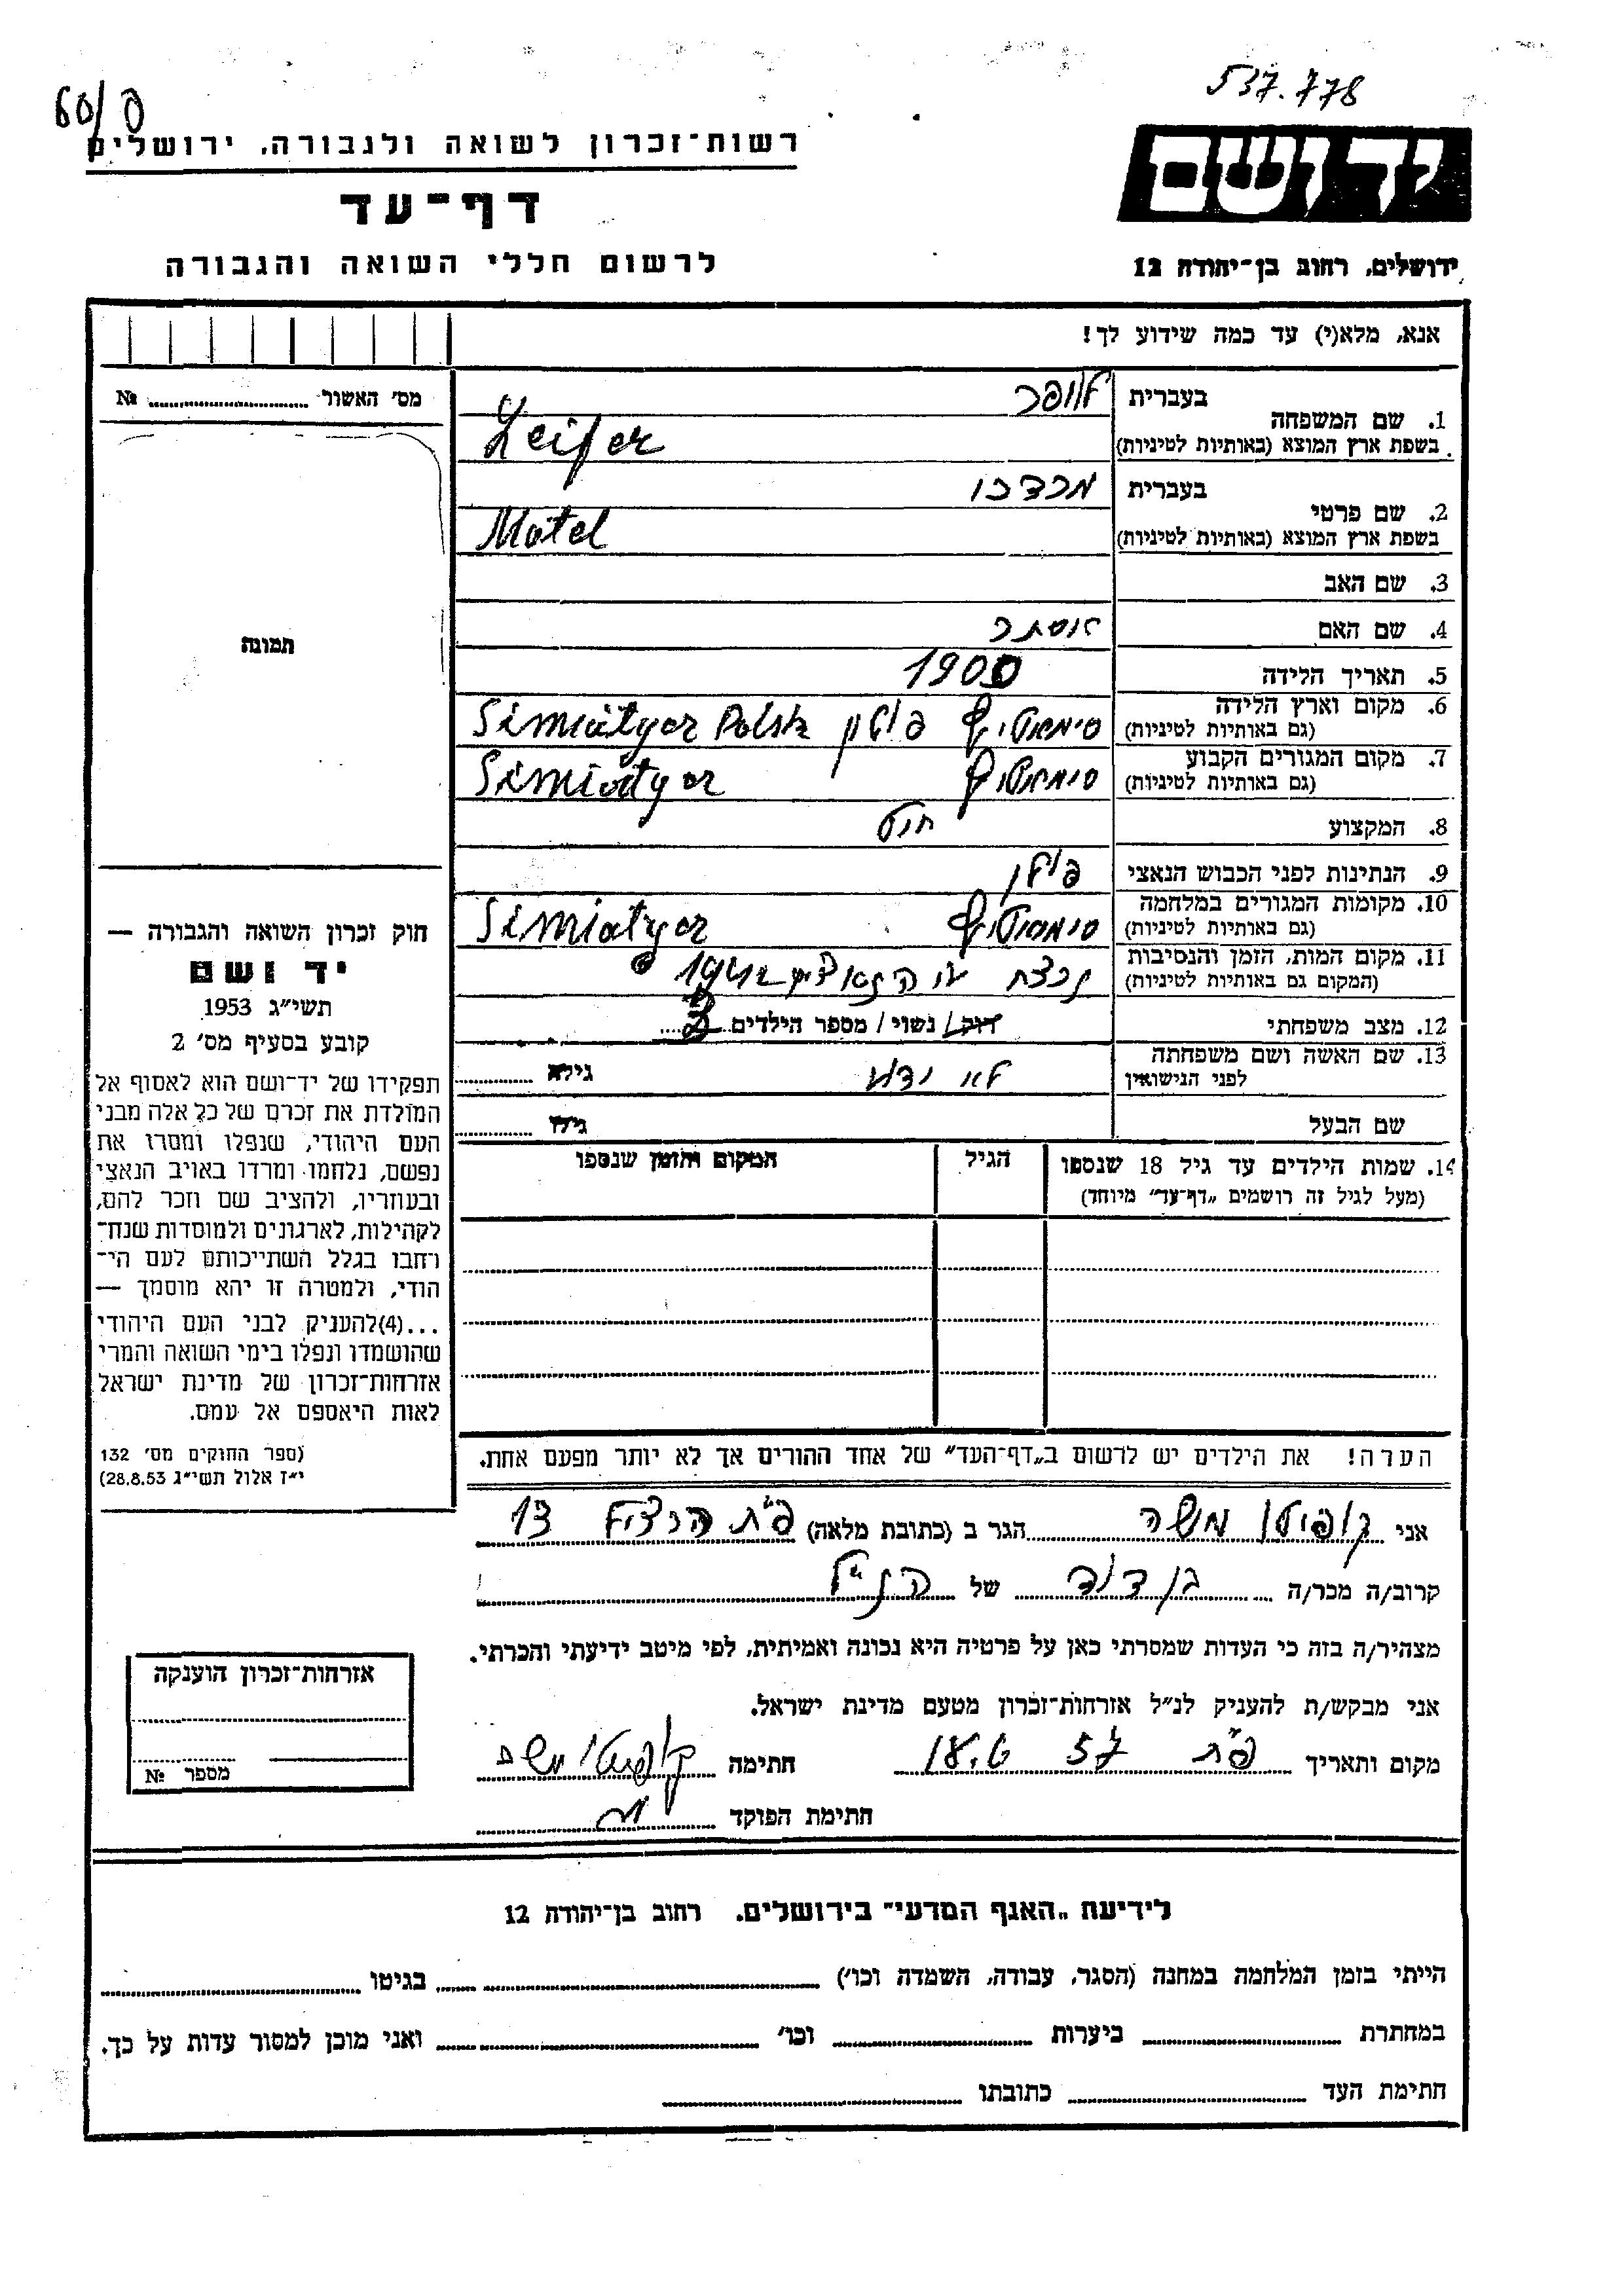 537.778
60/פ
יד ושם
רשות־זכרון לשואה ולגבורה, ירושלים
דף־עד
לרשום חללי השואה והגבורה
ירושלים, רחוב בן־יהודה 12
אנא, מלא(י) עד כמה שידוע לך!
מס׳ האשור № ........
1. שם המשפחה
בעברית לייפר
בשפת ארץ המוצא (באותיות לטיניות) Leifer
2. שם פרטי
בעברית מרדכי
בשפת ארץ המוצא (באותיות לטיניות) Motel
3. שם האב
4. שם האם אסתר
5. תאריך הלידה 1900
6. מקום וארץ הלידה
(גם באותיות לטיניות) פולין Simiatycz Polsk
7. מקום המגורים הקבוע
(גם באותיות לטיניות) Simiatycz
8. המקצוע חייט
9. הנתינות לפני הכבוש הנאצי פולין
10. מקומות המגורים במלחמה
(גם באותיות לטיניות) Simiatycz
11. מקום המות, הזמן והנסיבות
(המקום גם באותיות לטיניות) נרצח ע״י הנאצים
12. מצב משפחתי רווק / נשוי / מספר הילדים
13. שם האשה ושם משפחתה
לפני הנישואין לא ידוע גילה
שם הבעל גילו
14. שמות הילדים עד גיל 18 שנספו
(מעל לגיל זה רושמים „דף־עד״ מיוחד)
הגיל
המקום והזמן שנספו
הערה! את הילדים יש לרשום ב„דף־העד״ של אחד ההורים אך לא יותר מפעם אחת.
תמונה
חוק זכרון השואה והגבורה —
יד ושם
תשי״ג 1953
קובע בסעיף מס׳ 2
תפקידו של יד־ושם הוא לאסוף אל
המולדת את זכרם של כל אלה מבני
העם היהודי, שנפלו ומסרו את
נפשם, נלחמו ומרדו באויב הנאצי
ובעוזריו, ולהציב שם וזכר להם,
לקהילות, לארגונים ולמוסדות שנח־
רחבו בגלל השתייכותם לעם הי־
הודי, ולמטרה זו יהא מוסמך —
...(4)להעניק לבני העם היהודי
שהושמדו ונפלו בימי השואה והמרי
אזרחות־זכרון של מדינת ישראל
לאות היאספם אל עמם.
(ספר החוקים מס׳ 132
י״ז אלול תשי״ג 28.8.53)
אני משה הגר ב (כתובת מלאה) פ״ת הרציף 13
קרוב/ה מכר/ה בן דוד של הנ״ל
מצהיר/ה בזה כי העדות שמסרתי כאן על פרטיה היא נכונה ואמיתית, לפי מיטב ידיעתי והכרתי.
אני מבקש/ת להעניק לנ״ל אזרחות־זכרון מטעם מדינת ישראל.
מקום ותאריך פ״ת 57 חתימה
חתימת הפוקד
אזרחות־זכרון הוענקה
מספר №
לידיעת „האגף המדעי״ בירושלים, רחוב בן־יהודה 12
הייתי בזמן המלחמה במחנה (הסגר, עבודה, השמדה וכו׳) ........ בגיטו ........
במחתרת ........ ביערות ........ וכו׳ ........ ואני מוכן למסור עדות על כך.
חתימת העד ........ כתובתו ........